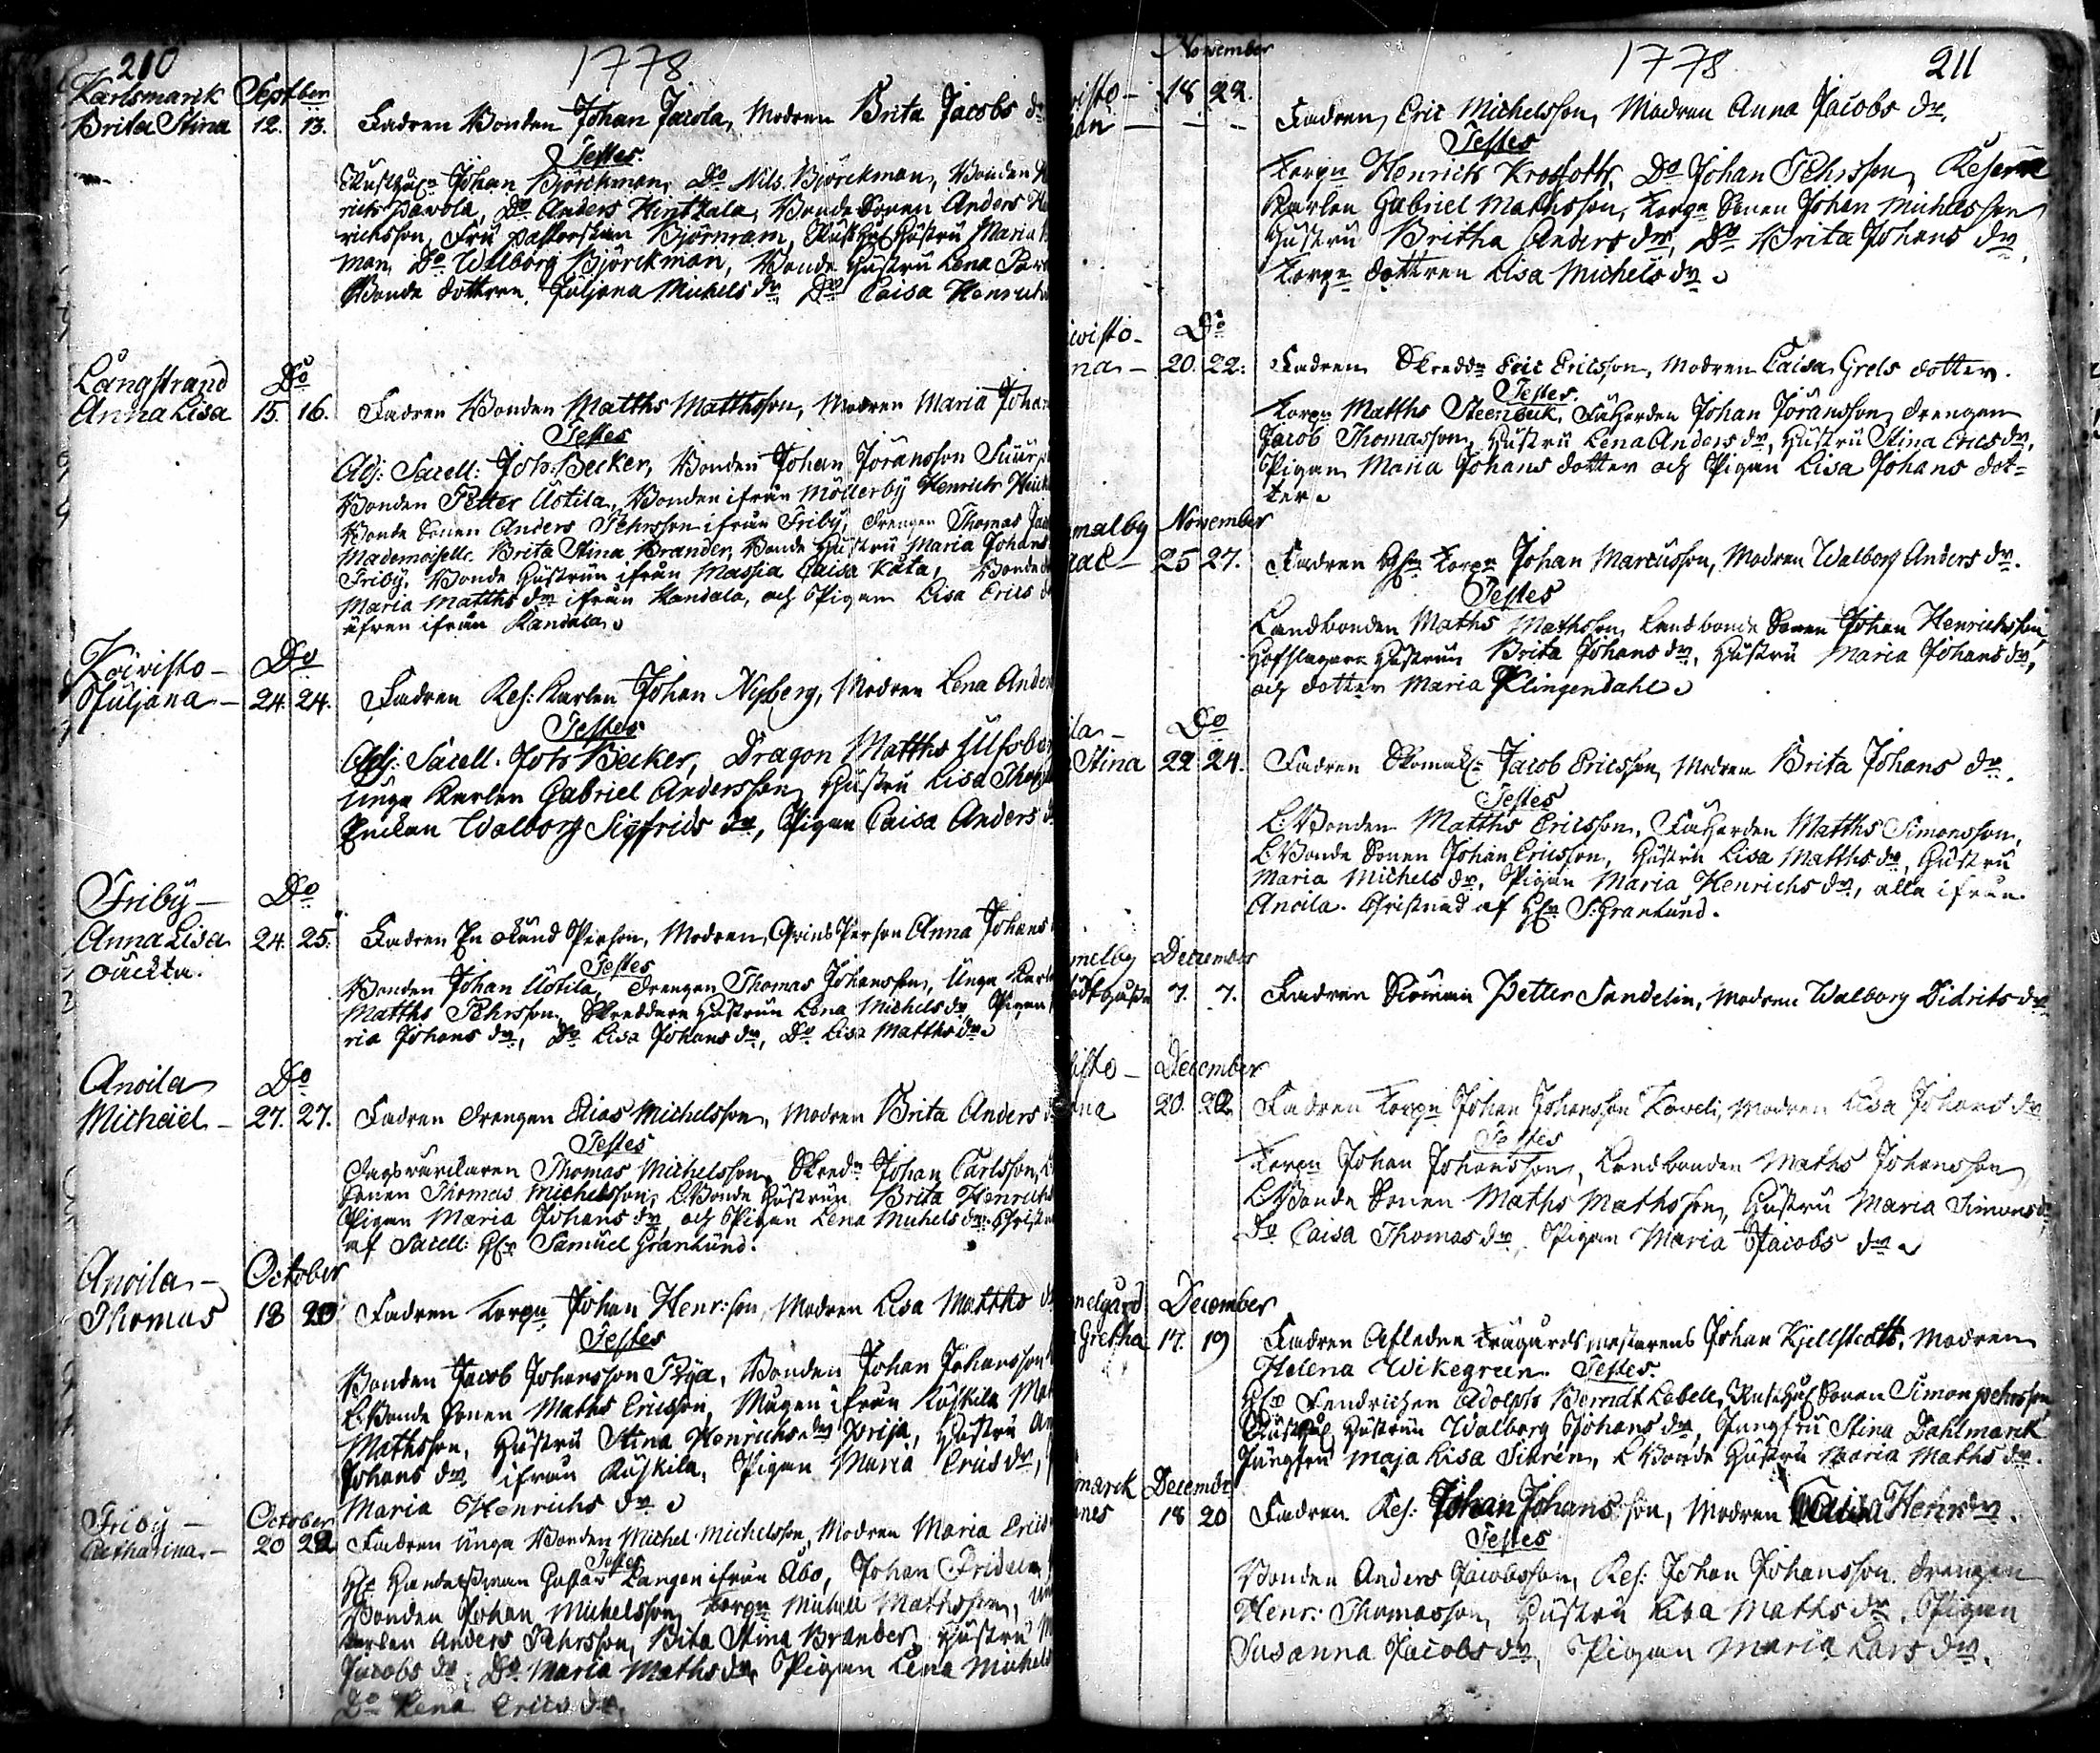 210
1778
Karlsmarck Septber
Brita Stina 12. 13. Fadren Bonden Johan Jacola, Modren Brita Jacobs dr
Testes.
Johan Björckman, Do Nils Björckman, Bonden
richs Pavola, Do Anders Hintzala, Bonde Sonen Anders
richsson, Fru Pastorskan Björnram, Hustru Maria
man, Do Walborg Björckman, Bonde Hustru Lena
Bonde dottren Juljana Michels dr Do Caisa Henrichs
Långstrand Do
Anna Lisa 15. 16. Fadren Bonden Matths Matthsson, Modren Maria Johan
Testes
Adj: Sacell: Joh: Becker, Bonden Johan Jöransson
Bonden Petter Ustila, Bonden ifrån Möllerby Henrich
Bonde Sonen Anders Pehrsson ifrån Friby, drengen Thomas
Mademoiselle Brita Stina Brander, Bonde Hustru Maria Johans
Friby, Bonde Hustrun ifrån Massia Caisa Kåta, Bonde
Maria Matths dr ifrån Kandala, och Pigan Lisa Erics
äfven ifrån Kandala
Koivisto - Do
Juljana - 24. 24. Fadren Res: Karlen Johan Nyberg, Modren Lena Anders
Testes
Adj: Sacell. Joh Becker, Dragon Matths Ulfsber
unga Karlen Gabriel Andersson, Hustru Lisa
Enckan Walborg Sigfrids dr, Pigan Caisa Anders
Friby - Do
Anna Lisa 24. 25. Fadren En okänd Person, Modren Qvins Person Anna Johans
oäckta. Testes
Bonden Johan Ustila, drengen Thomas Johansson, Unga Karl
Matths Pehrsson, Skreddare Hustrun Lena Michels dr, Pigan
ria Johans dr, Do Lisa Johans dr, Do Lisa Matths dr
Anoila Do
Michaël - 27. 27. Fadren drengen Elias Michelsson, Modren Brita Anders
Testes
Thomas Michelsson, Skredn Johan Carlsson,
Sonen Thomas Michelsson, L:Bonde Hustrun Brita Henrichs
Pigan Maria Johans dr, och Pigan Lena Michels dr.
af Sacell: Hr Samuel Granlund.
Anoila - October
Thomas 18 20 Fadren Torpn Johan Henr:son, Modren Lisa Matths
Testes
Bonden Jacob Johansson Prija, Bonden Johan Johansson
L:Bonde Sonen Maths Ericsson, Mågen ifrån Kåskila
Mathsson, Hustru Stina Henrichs dr Prija, Hustru
Johans dr ifrån Kåskila, Pigan Maria Erics dr,
Maria Henrichs dr
Friby - October
Catharina - 20 22 Fadren unga Bonden Michel Michelsson, Modren Maria Erics
Testes
Hr Handelsman Gustav Langen ifrån Åbo, Johan
Bonden Johan Michelsson, Torpn Michell Mathsson,
Karlen Anders Pehrsson, Brita Stina Brander, Hustru
Jacobs dr, Do Maria Maths dr, Pigan Lena Michels
Do Lena Erics dr.
November
1778
211
isto - 18 22. Fadren, Eric Michelsson, Modren Anna Jacobs dr.
Testes
Torpn Henrich Do Johan Pehrsson,
Karlen Gabriel Mathsson, Torpn Sonen Johan Michelsson
Hustru Britha Anders dr, Do Brita Johans dr,
Torpn dottren Lisa Michels dr
ivisto - Do
na - 20. 22. Fadren Skreddn Eric Ericsson, Modren Caisa Grels dotter.
Testes.
Torpn Matths Steenbuck, Johan Jöransson, drengen
Jacob Thomasson, Hustru Lena Anders dr, Hustru Stina Erics dr,
Pigan Maria Johans dotter och Pigan Lisa Johans dot=
ter
malby November
25 27. Fadren Torpn Johan Marcusson, Modren Walborg Anders dr.
Testes
Landbonden Maths Mathsson, Landbonde Sonen Johan Henrichsson,
Hofslagare Hustrun Brita Johans dr, Hustru Maria Johans dr,
och dotter Maria Klingendahl
ila - Do
Stina 22 24. Fadren Jacob Ericsson, Modren Brita Johans dr.
Testes
L:Bonden Matths Ericsson, Matths Simonsson,
L:Bonde Sonen Johan Ericsson, Hustru Lisa Matths dr, Hustru
Maria Michels dr, Pigan Maria Henrichs dr, alla ifrån
Anoila. Christnad af Hr S:Granlund.
melby December
7. 7. Fadren Petter Sandelin, Modren Walborg Didrits dr
isto - December
20. 22. Fadren Torpn Johan Johansson Modren Lisa Johans dr
Testes
Torpn Johan Johansson, Landbonden Maths Johansson
L:Bonde Sonen Maths Mathsson, Hustru Maria Simons dr
Do Caisa Thomas dr, Pigan Maria Jacobs dr
melgård December
Gretha 17. 19 Fadren Afledne Trägårdsmestarens Johan Kjellstedts, Modren
Helena Wikegreen. Testes.
Hr Fendrichen Adolph Berndt Sonen Simon Pehrsson,
Hustrun Walborg Johans dr, Jungfru Stina Dahlmarck
Jungfru Maja Lisa L:Bonde Hustru Maria Maths dr.
marck December
nes 18 20 Fadren Res: Johan Johansson, Modren Caisa Henr dr.
Testes
Bonden Anders Jacobsson, Res: Johan Johansson, drengen
Henr: Thomasson, Hustru Lisa Maths dr, Pigan
Susanna Jacobs dr, Pigan Maria Lars dr.